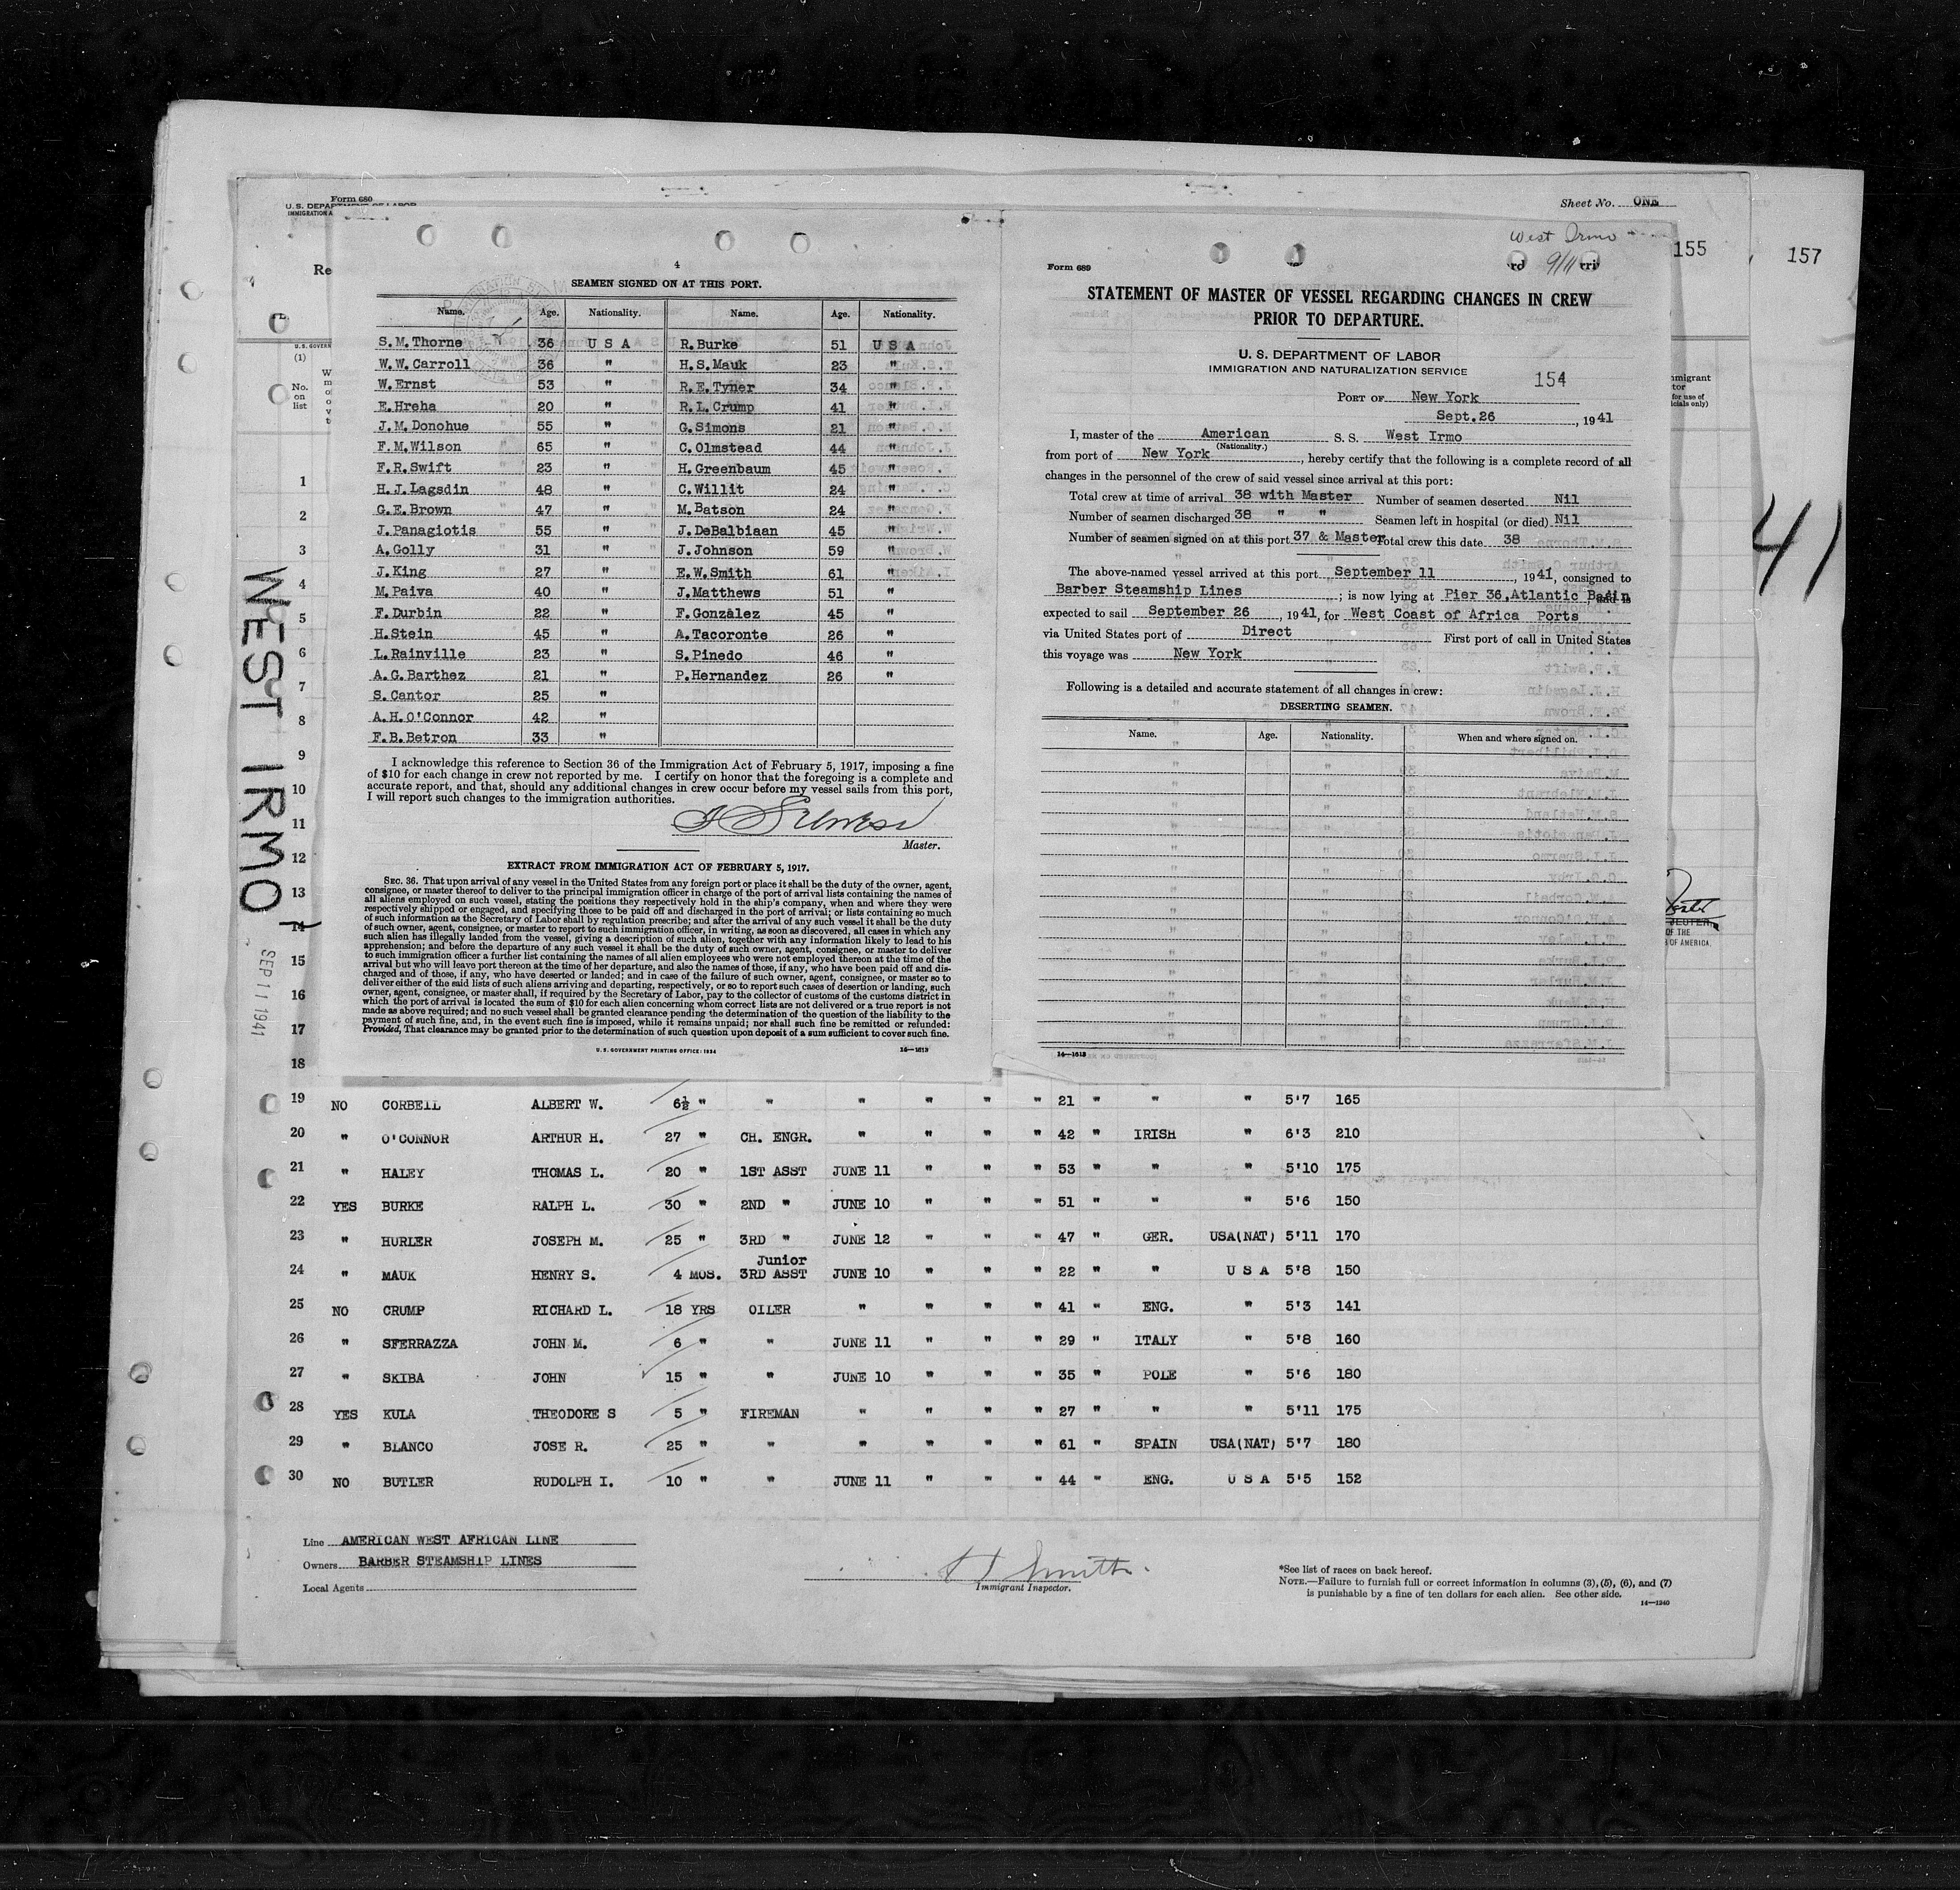 Form 680
U. S. DEPARTMENT OF LABOR
IMMIGRATION A
Sheet No. ONE
Re
155
157
U. S. GOVERN
(1)
No.
on
list
mmigrant
tor
for use of
icials only)
41
WEST IRMO
SEP 11 1941
4
SEAMEN SIGNED ON AT THIS PORT.
Name. Age. Nationality. Name. Age. Nationality.
S.M.Thorne 36 U S A R.Burke 51 U S A
W.W.Carroll 36 " H.S.Mauk 23 "
W.Ernst 53 " R.E.Tyner 34 "
E.Hreha 20 " R.L.Crump 41 "
J.M.Donohue 55 " G.Simons 21 "
F.M.Wilson 65 " C.Olmstead 44 "
F.R.Swift 23 " H.Greenbaum 45 "
H.J.Lagsdin 48 " C.Willit 24 "
G.E.Brown 47 " M.Batson 24 "
J.Panagiotis 55 " J.DeBalbiaan 45 "
A.Golly 31 " J.Johnson 59 "
J.King 27 " E.W.Smith 61 "
M.Paiva 40 " J.Matthews 51 "
F.Durbin 22 " F.Gonzàlez 45 "
H.Stein 45 " A.Tacoronte 26 "
L.Rainville 23 " S.Pinedo 46 "
A.G.Barthez 21 " P.Hernandez 26 "
S.Cantor 25 "
A.H.O'Connor 42 "
F.B.Betron 33 "
I acknowledge this reference to Section 36 of the Immigration Act of February 5, 1917, imposing a fine
of $10 for each change in crew not reported by me. I certify on honor that the foregoing is a complete and
accurate report, and that, should any additional changes in crew occur before my vessel sails from this port,
I will report such changes to the immigration authorities.
Master.
EXTRACT FROM IMMIGRATION ACT OF FEBRUARY 5, 1917.
SEC. 36. That upon arrival of any vessel in the United States from any foreign port or place it shall be the duty of the owner, agent,
consignee, or master thereof to deliver to the principal immigration officer in charge of the port of arrival lists containing the names of
all aliens employed on such vessel, stating the positions they respectively hold in the ship's company, when and where they were
respectively shipped or engaged, and specifying those to be paid off and discharged in the port of arrival; or lists containing so much
of such information as the Secretary of Labor shall by regulation prescribe; and after the arrival of any such vessel it shall be the duty
of such owner, agent, consignee, or master to report to such immigration officer, in writing, as soon as discovered, all cases in which any
such alien has illegally landed from the vessel, giving a description of such alien, together with any information likely to lead to his
apprehension; and before the departure of any such vessel it shall be the duty of such owner, agent, consignee, or master to deliver
to such immigration officer a further list containing the names of all alien employees who were not employed thereon at the time of the
arrival but who will leave port thereon at the time of her departure, and also the names of those, if any, who have been paid off and dis-
charged and of those, if any, who have deserted or landed; and in case of the failure of such owner, agent, consignee, or master so to
deliver either of the said lists of such aliens arriving and departing, respectively, or so to report such cases of desertion or landing, such
owner, agent, consignee, or master shall, if required by the Secretary of Labor, pay to the collector of customs of the customs district in
which the port of arrival is located the sum of $10 for each alien concerning whom correct lists are not delivered or a true report is not
made as above required; and no such vessel shall be granted clearance pending the determination of the question of the liability to the
payment of such fine, and, in the event such fine is imposed, while it remains unpaid; nor shall such fine be remitted or refunded:
Provided, That clearance may be granted prior to the determination of such question upon deposit of a sum sufficient to cover such fine.
U. S. GOVERNMENT PRINTING OFFICE: 1934 14—1613
West Irmo
9/11
Form 689
STATEMENT OF MASTER OF VESSEL REGARDING CHANGES IN CREW
PRIOR TO DEPARTURE.
U. S. DEPARTMENT OF LABOR
IMMIGRATION AND NATURALIZATION SERVICE
154
PORT OF New York
Sept.26, 1941
I, master of the American S. S. West Irmo
(Nationality.)
from port of New York, hereby certify that the following is a complete record of all
changes in the personnel of the crew of said vessel since arrival at this port:
Total crew at time of arrival 38 with Master Number of seamen deserted Nil
Number of seamen discharged 38 " " Seamen left in hospital (or died) Nil
Number of seamen signed on at this port 37 & Master Total crew this date 38
The above-named vessel arrived at this port September 11, 1941, consigned to
Barber Steamship Lines; is now lying at Pier 36,Atlantic Basin, and is
expected to sail September 26, 1941, for West Coast of Africa Ports
via United States port of Direct First port of call in United States
this voyage was New York.
Following is a detailed and accurate statement of all changes in crew:
DESERTING SEAMEN.
Name. Age. Nationality. When and where signed on.
14—1613
OF THE
OF AMERICA
1
2
3
4
5
6
7
8
9
10
11
12
13
14
15
16
17
18
19 NO CORBEIL ALBERT W. 6½ " " " " " " 21 " " " 5'7 165
20 " O'CONNOR ARTHUR H. 27 " CH. ENGR. " " " " 42 " IRISH " 6'3 210
21 " HALEY THOMAS L. 20 " 1ST ASST JUNE 11 " " " 53 " " " 5'10 175
22 YES BURKE RALPH L. 30 " 2ND " JUNE 10 " " " 51 " " " 5'6 150
23 " HURLER JOSEPH M. 25 " 3RD " JUNE 12 " " " 47 " GER. USA(NAT) 5'11 170
Junior
24 " MAUK HENRY S. 4 MOS. 3RD ASST JUNE 10 " " " 22 " " U S A 5'8 150
25 NO CRUMP RICHARD L. 18 YRS OILER " " " " 41 " ENG. " 5'3 141
26 " SFERRAZZA JOHN M. 6 " " JUNE 11 " " " 29 " ITALY " 5'8 160
27 " SKIBA JOHN 15 " " JUNE 10 " " " 35 " POLE " 5'6 180
28 YES KULA THEODORE S 5 " FIREMAN " " " " 27 " " " 5'11 175
29 " BLANCO JOSE R. 25 " " " " " " 61 " SPAIN USA(NAT) 5'7 180
30 NO BUTLER RUDOLPH I. 10 " " JUNE 11 " " " 44 " ENG. U S A 5'5 152
Line AMERICAN WEST AFRICAN LINE
Owners BARBER STEAMSHIP LINES
Local Agents
Smith
Immigrant Inspector.
*See list of races on back hereof.
NOTE.—Failure to furnish full or correct information in columns (3), (5), (6), and (7)
is punishable by a fine of ten dollars for each alien. See other side.
14—1240